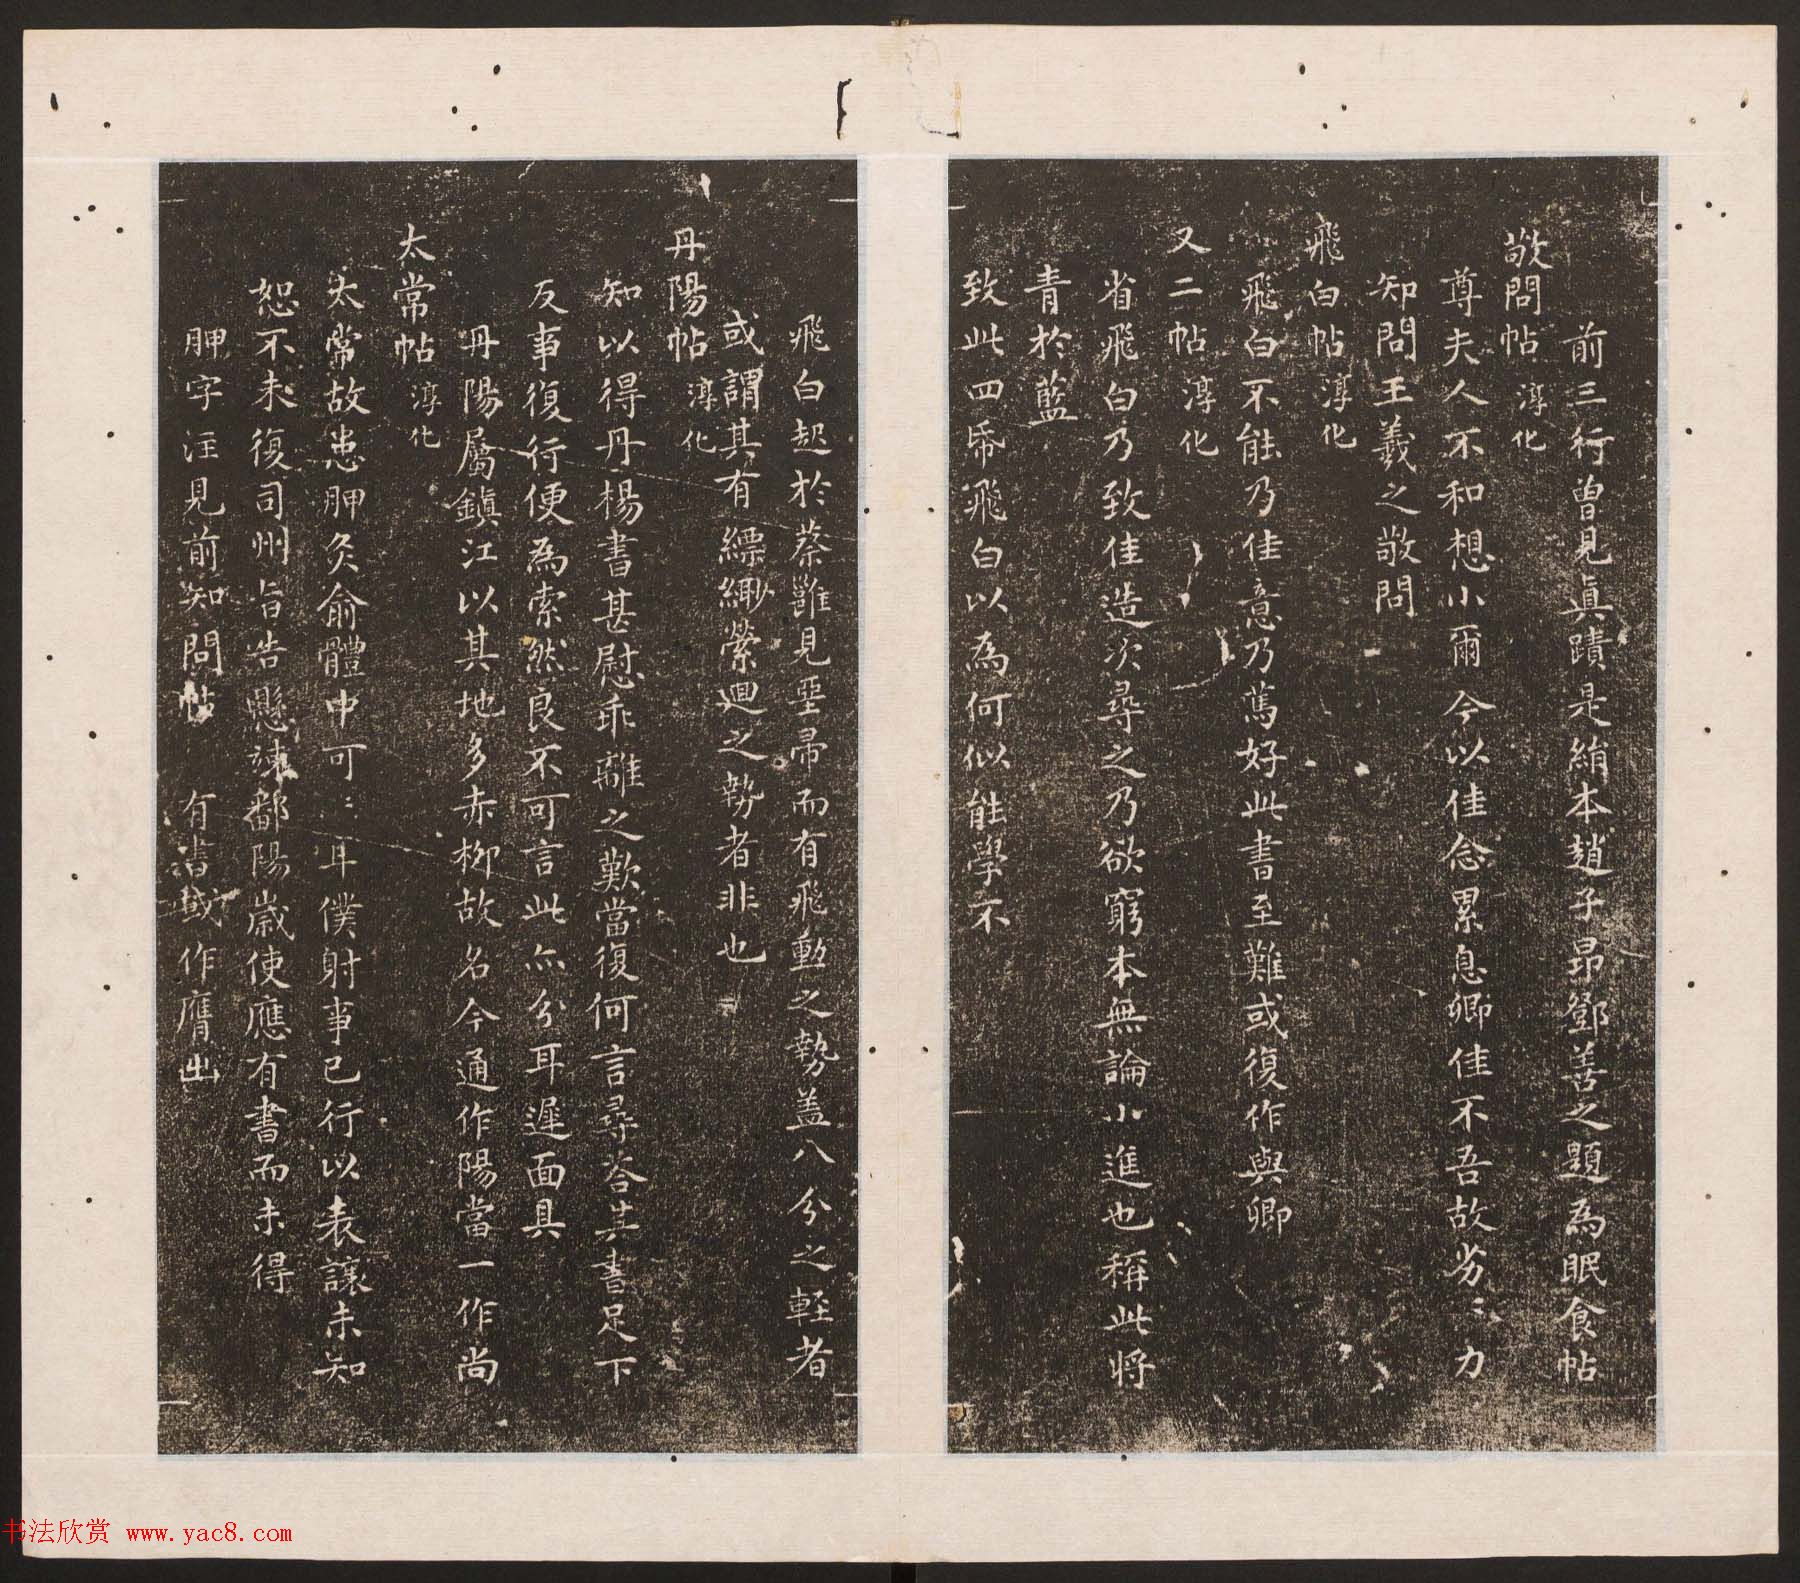 前三行曾見真蹟是絹本趙子昂鄧善之題為眠食帖
敬問帖 淳化
尊夫人不和想小爾今以佳念累息卿佳不吾故劣〻力
知問王羲之敬問
飛白帖 淳化
飛白不能乃佳意乃篤好此書至難或復作與卿
又二帖 淳化
省飛白乃致佳造次尋之乃欲窮本無論小進也稱此將
青於藍
致此四帋飛白以為何似能學不
飛白起於蔡雖見堊帚而有飛動之勢蓋八分之輕者
或謂其有縹緲縈迴之勢者非也
丹陽帖 淳化
知以得丹楊書甚慰乖離之歎當復何言尋荅其書足下
反事復行便為索然良不可言此亦分耳遲面具
丹陽屬鎮江以其地多赤柳故名今通作陽當一作尚
太常帖 淳化
太常故患胛灸俞體中可〻耳僕射事已行以表讓未知
恕不未復司州旨告懸竦鄱陽歲使應有書而未得
胛字注見前知問帖 有書或作膺出
书法欣赏 www.yac8.com